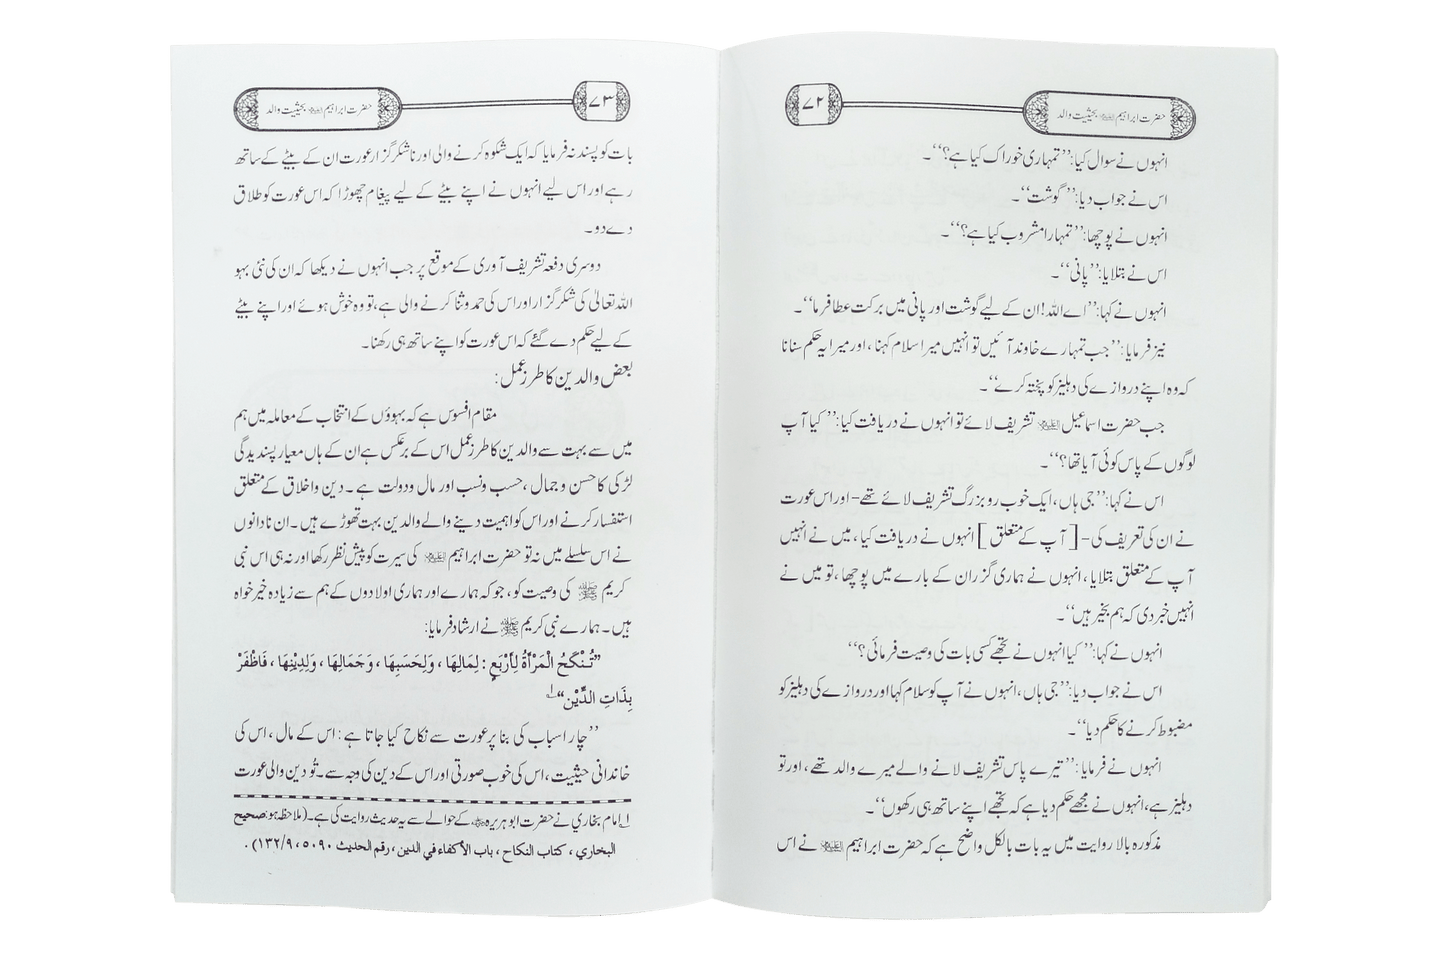 حضرت ابراہیم علیہ السلام بحیثیت والد
۷۲
انہوں نے سوال کیا: ’’تمہاری خوراک کیا ہے؟‘‘۔
اس نے جواب دیا: ’’گوشت‘‘۔
انہوں نے پوچھا: ’’تمہارا مشروب کیا ہے؟‘‘۔
اس نے بتلایا: ’’پانی‘‘۔
انہوں نے کہا: ’’اے اللہ! ان کے لیے گوشت اور پانی میں برکت عطا فرما‘‘۔
نیز فرمایا: ’’جب تمہارے خاوند آئیں تو انہیں میرا سلام کہنا، اور میرا یہ حکم سنانا
کہ وہ اپنے دروازے کی دہلیز کو پختہ کرے‘‘۔
جب حضرت اسماعیل علیہ السلام تشریف لائے تو انہوں نے دریافت کیا: ’’کیا آپ
لوگوں کے پاس کوئی آیا تھا؟‘‘۔
اس نے کہا: ’’جی ہاں، ایک خوب رو بزرگ تشریف لائے تھے - اور اس عورت
نے ان کی تعریف کی - [آپ کے متعلق] انہوں نے دریافت کیا، میں نے انہیں
آپ کے متعلق بتلایا، انہوں نے ہماری گزران کے بارے میں پوچھا، تو میں نے
انہیں خبر دی کہ ہم بخیر ہیں‘‘۔
انہوں نے کہا: ’’کیا انہوں نے تجھے کسی بات کی وصیت فرمائی؟‘‘
اس نے جواب دیا: ’’جی ہاں، انہوں نے آپ کو سلام کہا اور دروازے کی دہلیز کو
مضبوط کرنے کا حکم دیا‘‘۔
انہوں نے فرمایا: ’’تیرے پاس تشریف لانے والے میرے والد تھے، اور تو
دہلیز ہے، انہوں نے مجھے حکم دیا ہے کہ تجھے اپنے ساتھ ہی رکھوں‘‘۔
مذکورہ بالا روایت میں یہ بات بالکل واضح ہے کہ حضرت ابراہیم علیہ السلام نے اس
۷۳
حضرت ابراہیم علیہ السلام بحیثیت والد
بات کو پسند نہ فرمایا کہ ایک شکوہ کرنے والی اور ناشکر گزار عورت ان کے بیٹے کے ساتھ
رہے اور اس لیے انہوں نے اپنے بیٹے کے لیے پیغام چھوڑا کہ اس عورت کو طلاق
دے دو۔
دوسری دفعہ تشریف آوری کے موقع پر جب انہوں نے دیکھا کہ ان کی نئی بہو
اللہ تعالیٰ کی شکر گزار اور اس کی حمد و ثنا کرنے والی ہے، تو وہ خوش ہوئے اور اپنے بیٹے
کے لیے حکم دے گئے کہ اس عورت کو اپنے ساتھ ہی رکھنا۔
بعض والدین کا طرزِ عمل:
مقام افسوس ہے کہ بہوؤں کے انتخاب کے معاملہ میں ہم
میں سے بہت سے والدین کا طرزِ عمل اس کے برعکس ہے ان کے ہاں معیار پسندیدگی
لڑکی کا حسن و جمال، حسب ونسب اور مال ودولت ہے۔ دین واخلاق کے متعلق
استفسار کرنے اور اس کو اہمیت دینے والے والدین بہت تھوڑے ہیں۔ ان نادانوں
نے اس سلسلے میں نہ تو حضرت ابراہیم علیہ السلام کی سیرت کو پیش نظر رکھا اور نہ ہی اس نبی
کریم ﷺ کی وصیت کو، جو کہ ہمارے اور ہماری اولادوں کے ہم سے زیادہ خیرخواہ
ہیں۔ ہمارے نبی کریم ﷺ نے ارشاد فرمایا:
”تُنْكَحُ الْمَرْأَةُ لِأَرْبَعٍ: لِمَالِهَا، وَلِحَسَبِهَا، وَجَمَالِهَا، وَلِدِيْنِهَا، فَاظْفَرْ
بِذَاتِ الدِّيْنِ“ ۱
’’چار اسباب کی بنا پر عورت سے نکاح کیا جاتا ہے: اس کے مال، اس کی
خاندانی حیثیت، اس کی خوب صورتی اور اس کے دین کی وجہ سے۔ تُو دین والی عورت
۱ امام بخاري نے حضرت ابو ہریرہ رضی اللہ عنہ کے حوالے سے یہ حدیث روایت کی ہے۔ (ملاحظہ ہو: صحيح
البخاري، كتاب النكاح، باب الأكفاء في الدين، رقم الحديث ۵۰۹۰، ۱۳۲/۹).